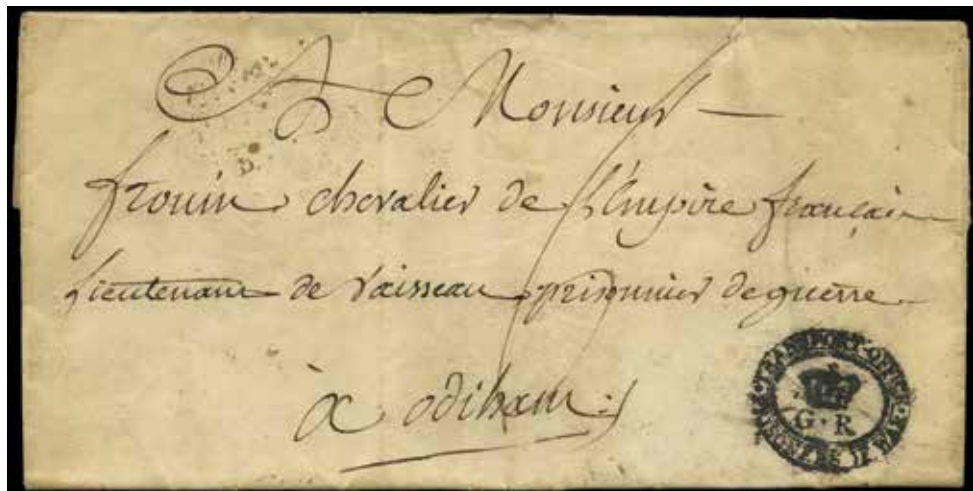 A Monsieur
frouin chevalier de l'Empire français
lieutenant de vaisseau prisonnier de guerre
à odiham
TRANSPORT·OFFICE
PRISONERS OF WAR
G·R